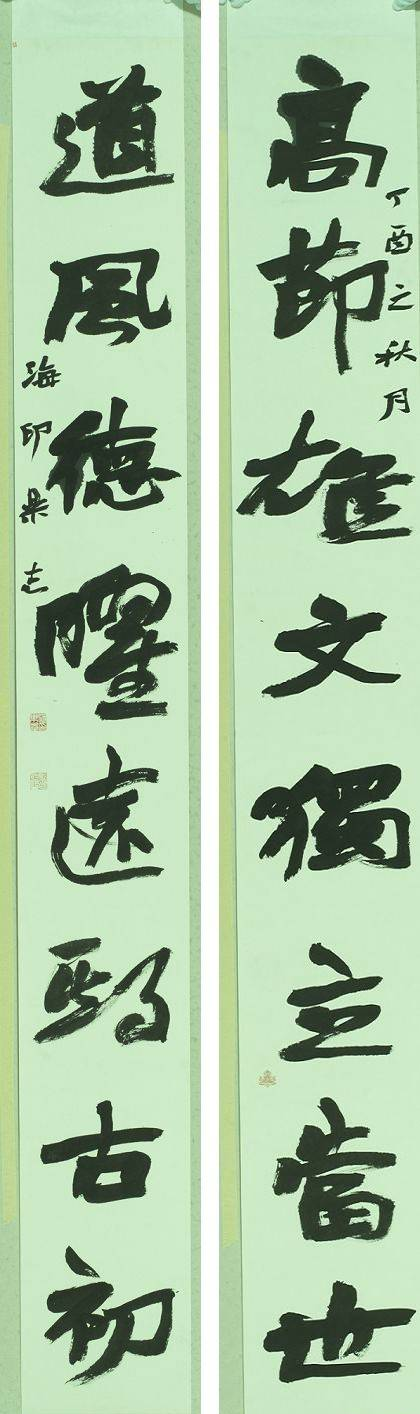 高節雄文獨立當世
丁酉之秋月
道風德曜遠

古初
海印

志